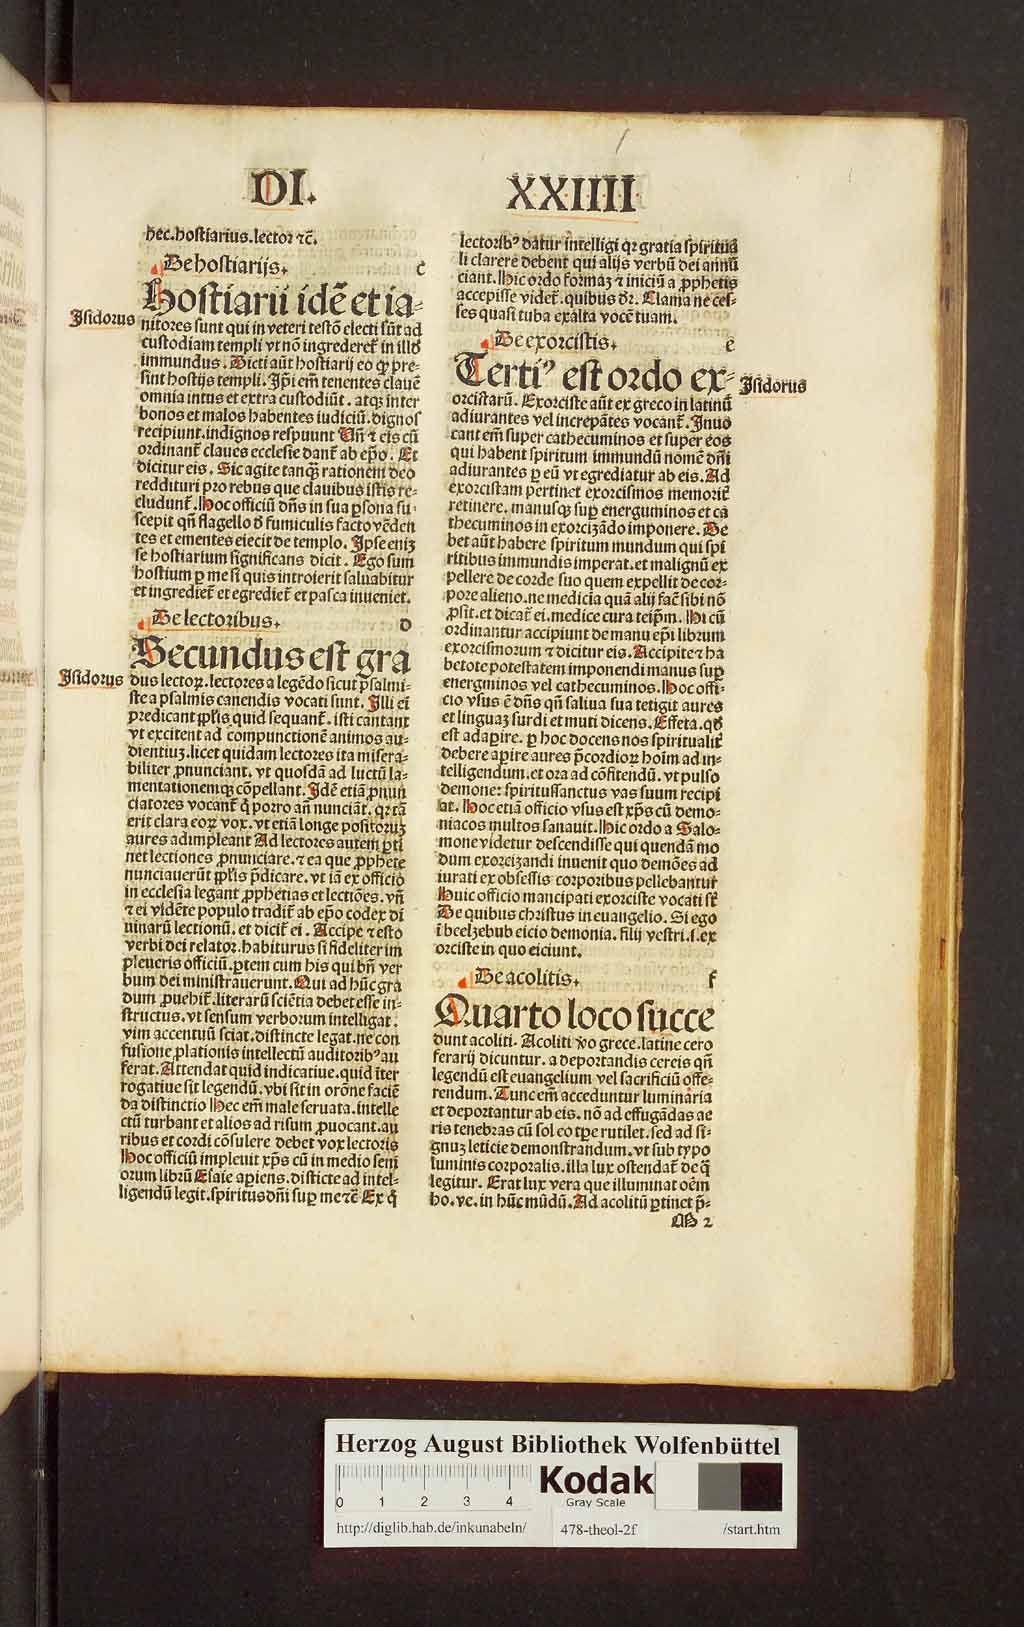 DI.
XXIIII
hec.hostiarius.lector ⁊c̄.
De hostiarijs.
c
Hostiarii idē et ia-
Isidorus
nitores sunt qui in veteri testō electi sūt ad
custodiam templi vt nō ingrederet̄ in illū
immundus. Dicti aūt hostiarij eo ꝙ pre-
sint hostijs templi. Ip̄i em̄ tenentes clauē
omnia intus et extra custodiūt. atqꝫ inter
bonos et malos habentes iudiciū. dignos
recipiunt.indignos respuunt Vn̄ ⁊ eis cū
ordinant̄ claues ecclesie dant̄ ab ep̄o. Et
dicitur eis. Sic agite tanqꝫ rationem deo
reddituri pro rebus que clauibus istis re-
cludunt̄. Hoc officiū dn̄s in sua ꝑsona su-
scepit qn̄ flagello d̄ funiculis facto vēden
tes et ementes eiecit de templo. Ipse eniꝫ
se hostiarium significans dicit. Ego sum
hostium ꝑ me si quis introierit saluabitur
et ingrediet̄ et egrediet̄ et pascа inueniet.
De lectoribus.
d
Secundus est gra
Isidorus
dus lectoꝝ. lectores a legēdo sicut p̄salmi-
ste a psalmis canendis vocati sunt. Illi ei
predicant ꝑplis quid sequant̄. isti cantant
vt excitent ad compunctionē animos au-
dientiuꝫ. licet quidam lectores ita misera-
biliter ꝓnunciant. vt quosdā ad luctū la-
mentationemqꝫ cōpellant. Idē etiā ꝓnun
ciatores vocant̄ q̄ porro an̄ nunciāt. qꝛ tā
erit clara eoꝝ vox. vt etiā longe positoruꝫ
aures adimpleant Ad lectores autem ꝑti
net lectiones ꝓnunciare. ⁊ ea que ꝓphete
nunciauerūt ꝑplis p̄dicare. vt iā ex officio
in ecclesia legant ꝓphetias et lectiōes. vn̄
⁊ ei vidēte populo tradit̄ ab ep̄o codex di
uinarū lectionū. et dicit̄ ei. Accipe ⁊ esto
verbi dei relator. habiturus si fideliter im
pleueris officiū. ꝑtem cum his qui bn̄ ver
bum dei ministrauerunt. Qui ad hūc gra
dum ꝓuehit̄. literarū sciētia debet esse in-
structus. vt sensum verborum intelligat.
vim accentuū sciat. distincte legat. ne con
fusione ꝓlationis intellectū auditorib⁹ au
ferat. Attendat quid indicatiue. quid īter
rogatiue sit legendū. vbi sit in orōne faciē
da distinctio Hec em̄ male seruata. intelle
ctū turbant et alios ad risum ꝓuocant. au
ribus et cordi cōsulere debet vox lectoris
Hoc officiū impleuit xp̄s cū in medio seni
orum librū Esaie aꝑiens. disticte ad intel-
ligendū legit. spiritus dn̄i suꝑ me ⁊c̄ Ex q̄
lectorib⁹ datur intelligi qꝛ gratia spiritua
li clarere debent qui alijs verbū dei annū
ciant. Hic ordo formaꝫ ⁊ iniciū a ꝓphetis
accepisse videt̄. quibus dr̄. Clama ne ces-
ses quasi tuba exalta vocē tuam.
De exorcistis.
e
Terti⁹ est ordo ex-
Isidorus
orcistarū. Exorciste aūt ex greco in latinū
adiurantes vel increpātes vocant̄. Inuo
cant em̄ super cathecuminos et super eos
qui habent spiritum immundū nomē dn̄i
adiurantes ꝑ eū vt egrediatur ab eis. Ad
exorcistam pertinet exorcismos memorit̄
retinere. manusqꝫ suꝑ energuminos et ca
thecuminos in exorcizādo imponere. De
bet aūt habere spiritum mundum qui spi
ritibus immundis imperat. et malignū ex
pellere de corde suo quem expellit de cor-
pore alieno. ne medicia quā alij fac̄ sibi nō
ꝓsit. et dicat̄ ei. medice cura teip̄m. Hi cū
ordinantur accipiunt de manu ep̄i librum
exorcismorum ⁊ dicitur eis. Accipite ⁊ ha
betote potestatem imponendi manus suꝑ
energminos vel cathecuminos. Hoc offi-
cio vsus ē dn̄s qn̄ saliua sua tetigit aures
et linguaꝫ surdi et muti dicens. Effeta. qd̄
est adaꝑire. ꝑ hoc docens nos spiritualit̄
debere aꝑire aures p̄cordioꝝ hoīm ad in-
telligendum. et ora ad cōfitendū. vt pulso
demone: spiritussanctus vas suum recipi
at. Hoc etiā officio vsus est xp̄s cū demo-
niacos multos sanauit. Hic ordo a Salo-
mone videtur descendisse qui quendā mo
dum exorcizandi inuenit quo demōes ad
iurati ex obsessis corporibus pellebantur
Huic officio mancipati exorciste vocati st̄
De quibus christus in euangelio. Si ego
ī beelzebub eicio demonia. filij vestri .s. ex
orciste in quo eiciunt.
De acolitis.
f
Quarto loco succe
dunt acoliti. Acoliti ṽo grece. latine cero
ferarij dicuntur. a deportandis cereis qn̄
legendū est euangelium vel sacrificiū offe-
rendum. Tunc em̄ acceduntur luminaria
et deportantur ab eis. nō ad effugādas ae
ris tenebras cū sol eo tꝑe rutilet. sed ad si-
gnuꝫ leticie demonstrandum. vt sub typo
luminis corporalis. illa lux ostendat̄ de q̄
legitur. Erat lux vera que illuminat oēm
ho. ve. in hūc mūdū. Ad acolitū ꝑtinet p̄-
M 2
Herzog August Bibliothek Wolfenbüttel
0 1 2 3 4
Kodak
Gray Scale
http://diglib.hab.de/inkunabeln/
478-theol-2f
/start.htm